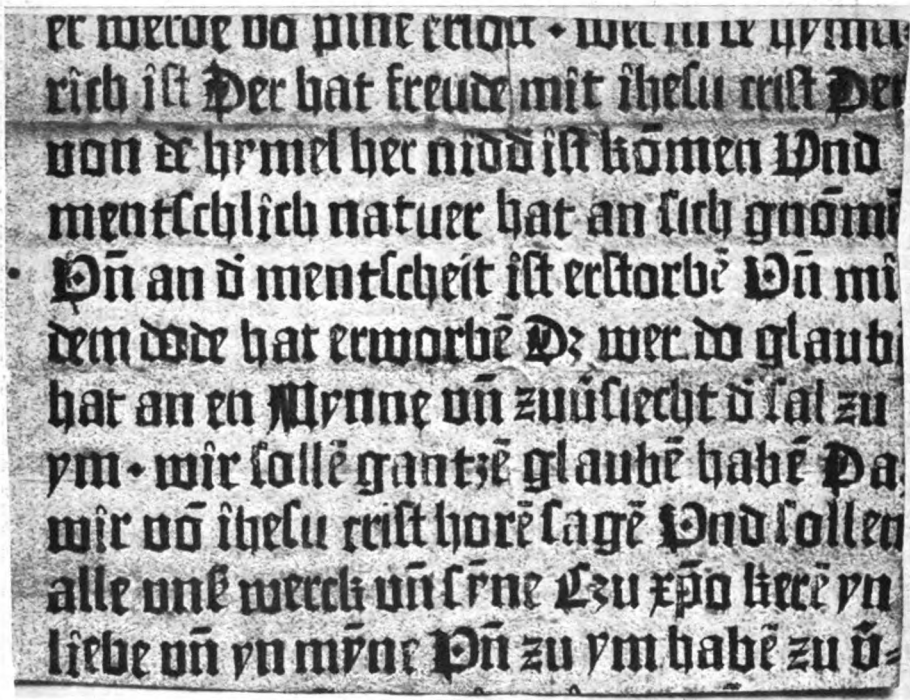 er werde vō pine erlost · wer in de
rich ist Der hat freude mit ihesu crist Der
von dē hymel her nidd̄ ist kōmen Vnd
mentſchlich natuer hat an ſich gnōmē
Vn̄ an d̄ mentſcheit iſt erſtorbē Vn̄ mi
dem dode hat erworbē Dz wer do glaub
hat an en Mynne vn̄ zuv̄ſiecht d̄ ſal zu
ym · wir ſollē gantzē glaubē habē Da
wir vō ihesu criſt horē ſagē Vnd ſollen
alle vnß werck vn̄ ſȳne Czu xp̄o kerē yn
liebe vn̄ yn mȳne Vn̄ zu ym habē zu v̄⸗